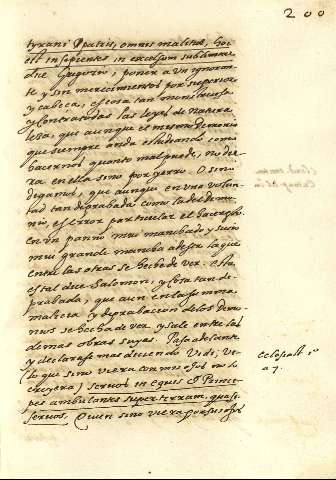 200
tyrani Patris, omnis malitiæ, Hoc
est insipientes in excelsum sublimare
dice Gregorio, poner a un ignoran
te y sin merecimientos por superior
y cabeça, es cosa tan monstruosa
y contra todas las leyes de natura
leza, que aunque el mismo Demonio
que siempre anda estudiando como
hacernos quanto mal puede, no die
ra en ella sino por yerro. O sino
digamos, que aunque en una volun
tad tan deprabada como la del demo
nio, es error particular el hacerlo.
en un panno mui manchado y sucio
mui grande mancha a de ser la que
entre las otras se heche de ver.
es tal dice Salomon, y cosa tan de
prabada, que aun en la suma
malicia y deprabacion de los demo
nios se hecha de ver, y sale entre las
demas obras suyas. Pasa adelante
y declarase mas deciendo Vidi, vi
(lo que sino viera con mis ojos no lo
creyera) servos in equis et Princi
pes ambulantes super terram, quasi
servos. Quien sino viera por sus ojos
eclesiast 10
a 7.